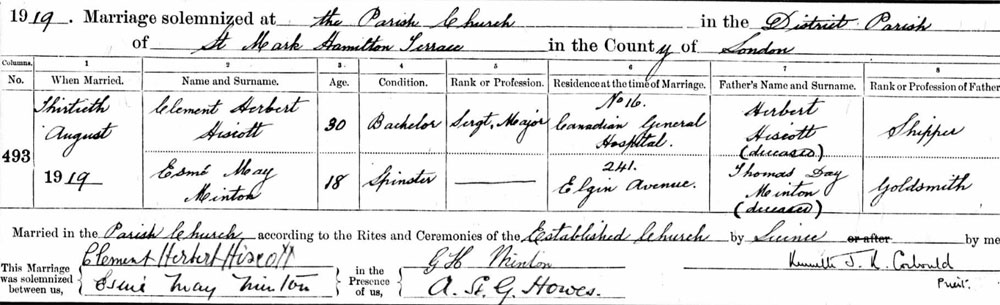 1919. Marriage solemnized at the Parish Church in the District Parish
of St Mark Hamilton Terrace in the County of London
Columns. 1 2 3 4 5 6 7 8
No. When Married. Name and Surname. Age. Condition. Rank or Profession. Residence at the time of Marriage. Father's Name and Surname. Rank or Profession of Father
493
Thirtieth
August
1919
Clement Herbert
Hiscott
30
Bachelor
Sergt, Major
No 16.
Canadian General
Hospital.
Herbert
Hiscott
(deceased)
Shipper
Esmé May
Minton
18
Spinster
241.
Elgin Avenue.
Thomas Day
Minton
(deceased)
Goldsmith
Married in the Parish Church according to the Rites and Ceremonies of the Established Church by Licence or after by me
This Marriage
was solemnized
between us,
Clement Herbert Hiscott
Esmé May Minton
in the
Presence
of us,
G H Minton
A. St. G. Howes.
Kenneth J. R. Corbould
Priest.